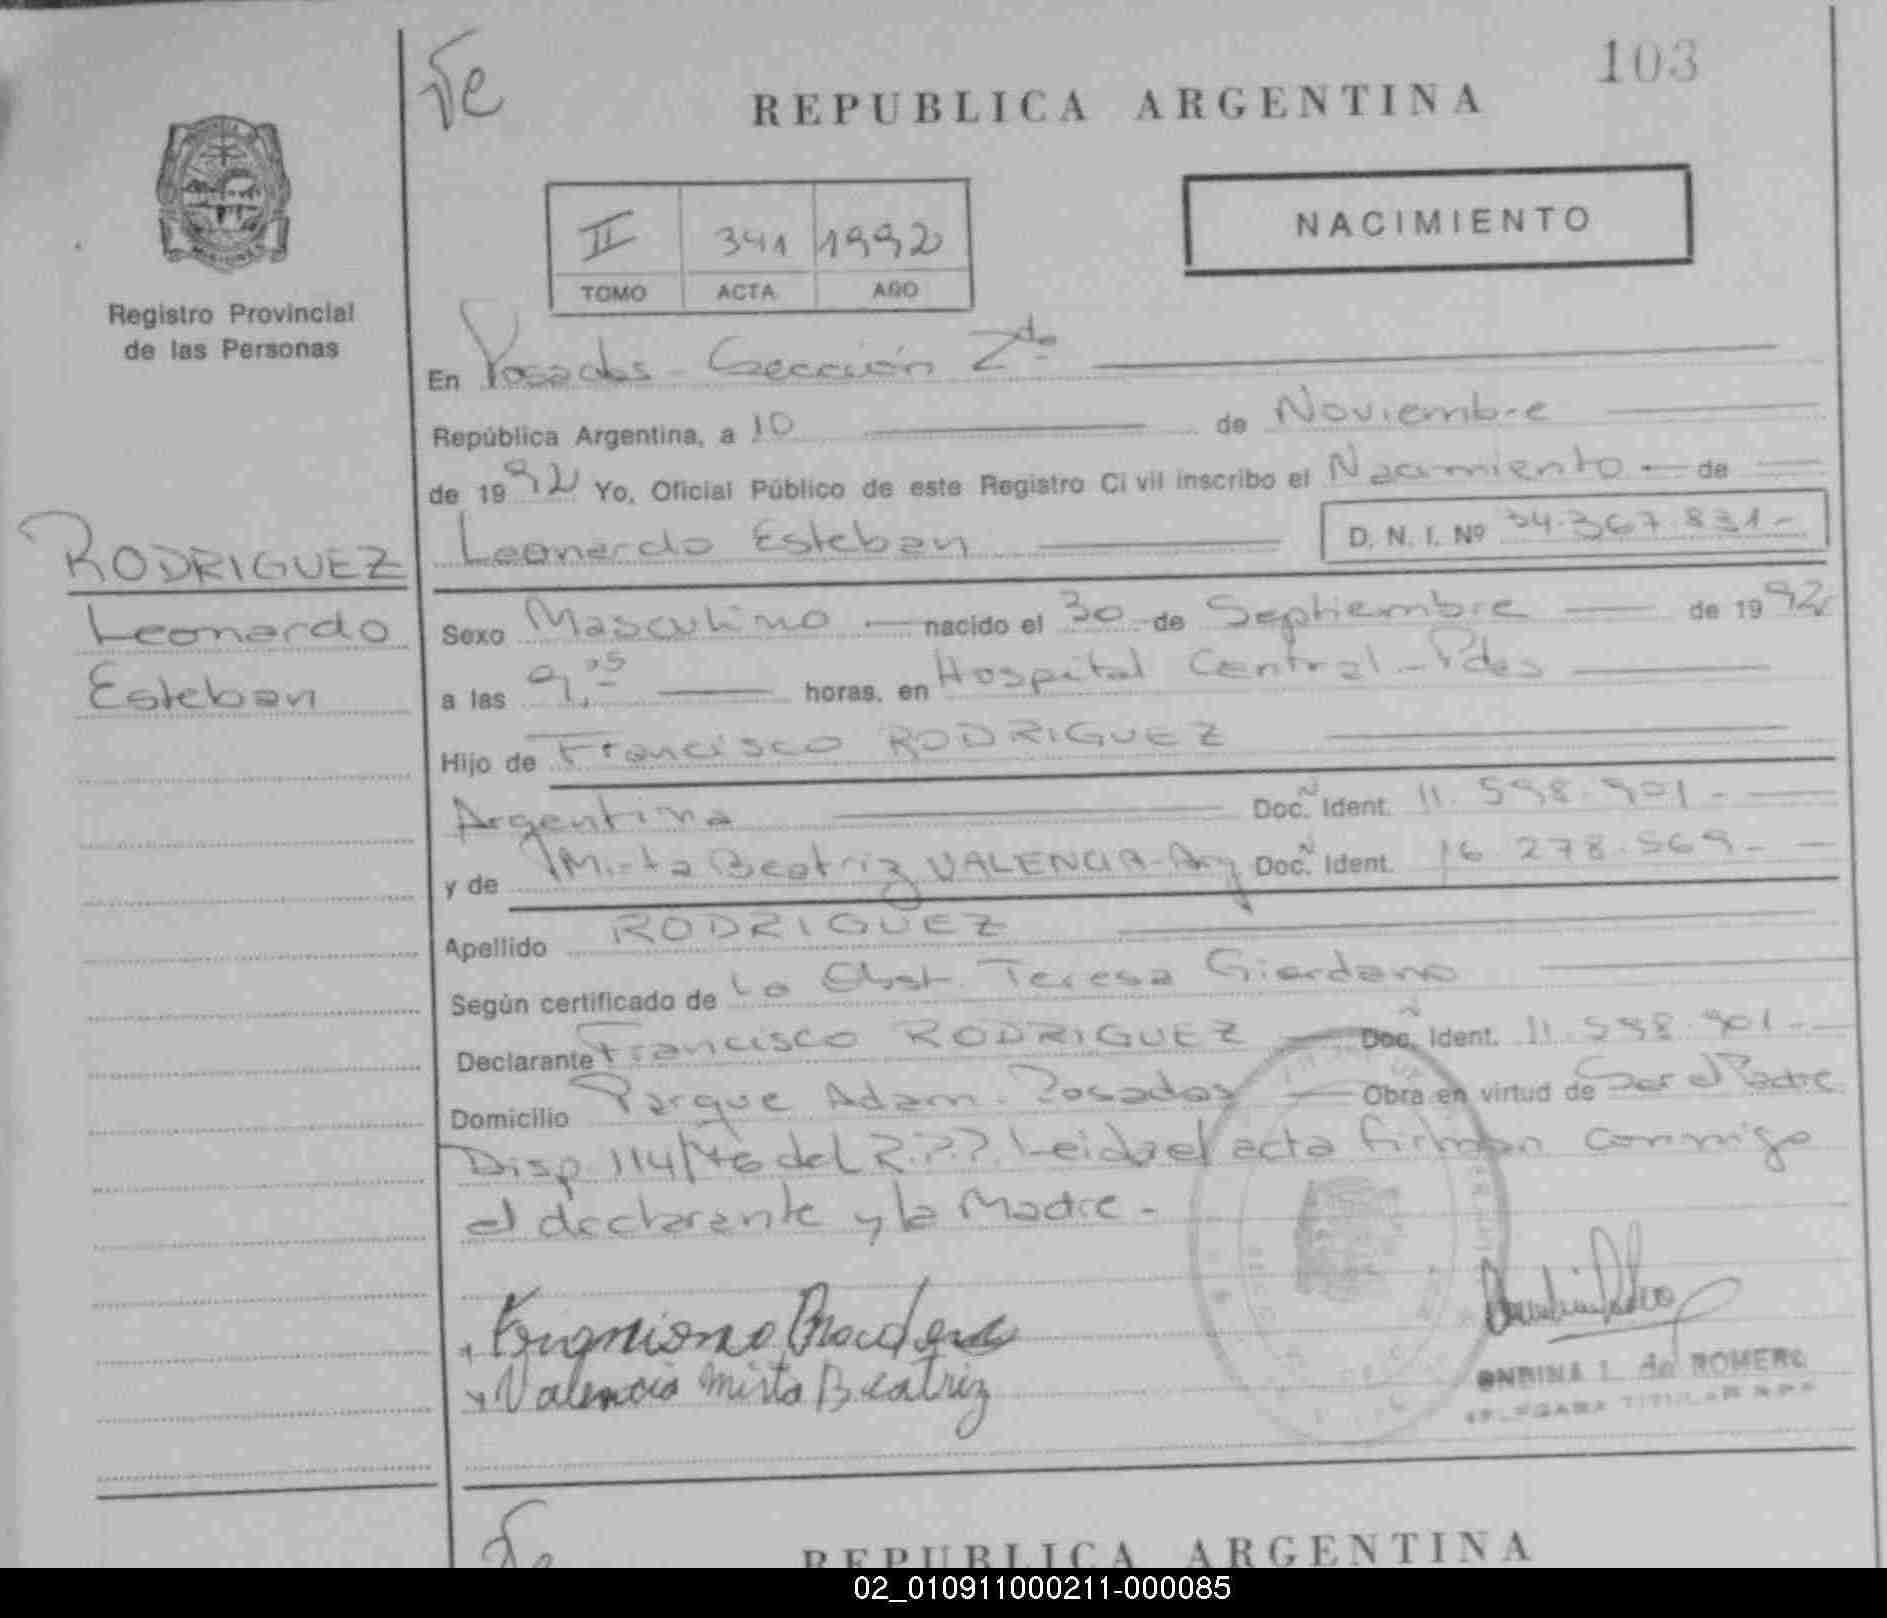 103
REPUBLICA ARGENTINA
NACIMIENTO
II 341 1992
TOMO ACTA AÑO
Registro Provincial
de las Personas
En Posadas - Sección 2da
República Argentina, a 10 de Noviembre
de 1992 Yo, Oficial Público de este Registro Civil inscribo el Nacimiento de
Leonardo Esteban D. N. I. Nº 34.367.831-
RODRIGUEZ
Leonardo
Esteban
Sexo Masculino nacido el 30 de Septiembre de 1992
a las 9,05 horas, en Hospital Central - Pdas
Hijo de Francisco RODRIGUEZ
Argentina Doc. Ident. 11.598.901-
y de Mirta Beatriz VALENCIA - Arg Doc. Ident. 16.278.569-
Apellido RODRIGUEZ
Según certificado de La Obst. Teresa Giordano
Declarante Francisco RODRIGUEZ Doc. Ident. 11.598.901-
Domicilio Parque Adam. Posadas Obra en virtud de Ser el Padre
Disp. 114/76 del R.P.P. Leida el acta firman conmigo
el declarante y la Madre-
Valencia Mirta Beatriz
ONDINA I. de ROMERO
DELEGADA TITULAR R.P.P.
REPUBLICA ARGENTINA
02_010911000211-000085